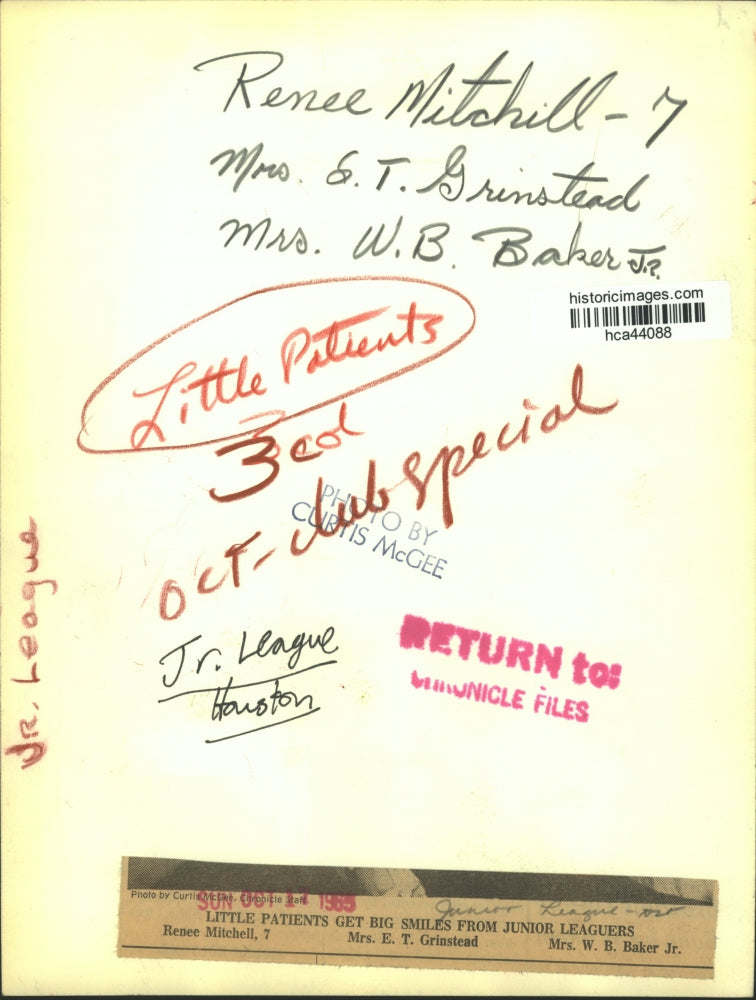 Renee Mitchill - 7
Mrs. E. T. Grinstead
Mrs. W. B. Baker Jr.
historicimages.com
hca44088
Little Patients
3 col
OCT- club special
PHOTO BY
CURTIS McGEE
Jr. League
Houston
RETURN to:
CHRONICLE FILES
JR. League
Photo by Curtis McGee, Chronicle Staff
SUN OCT 17 1965
Junior League -
LITTLE PATIENTS GET BIG SMILES FROM JUNIOR LEAGUERS
Renee Mitchell, 7 Mrs. E. T. Grinstead Mrs. W. B. Baker Jr.